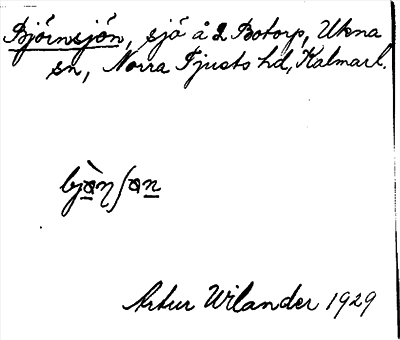 Björnsjön, sjö å 2 Botorp, Ukna
sn, Norra Tjusts hd, Kalmar l.
Artur Wilander 1929